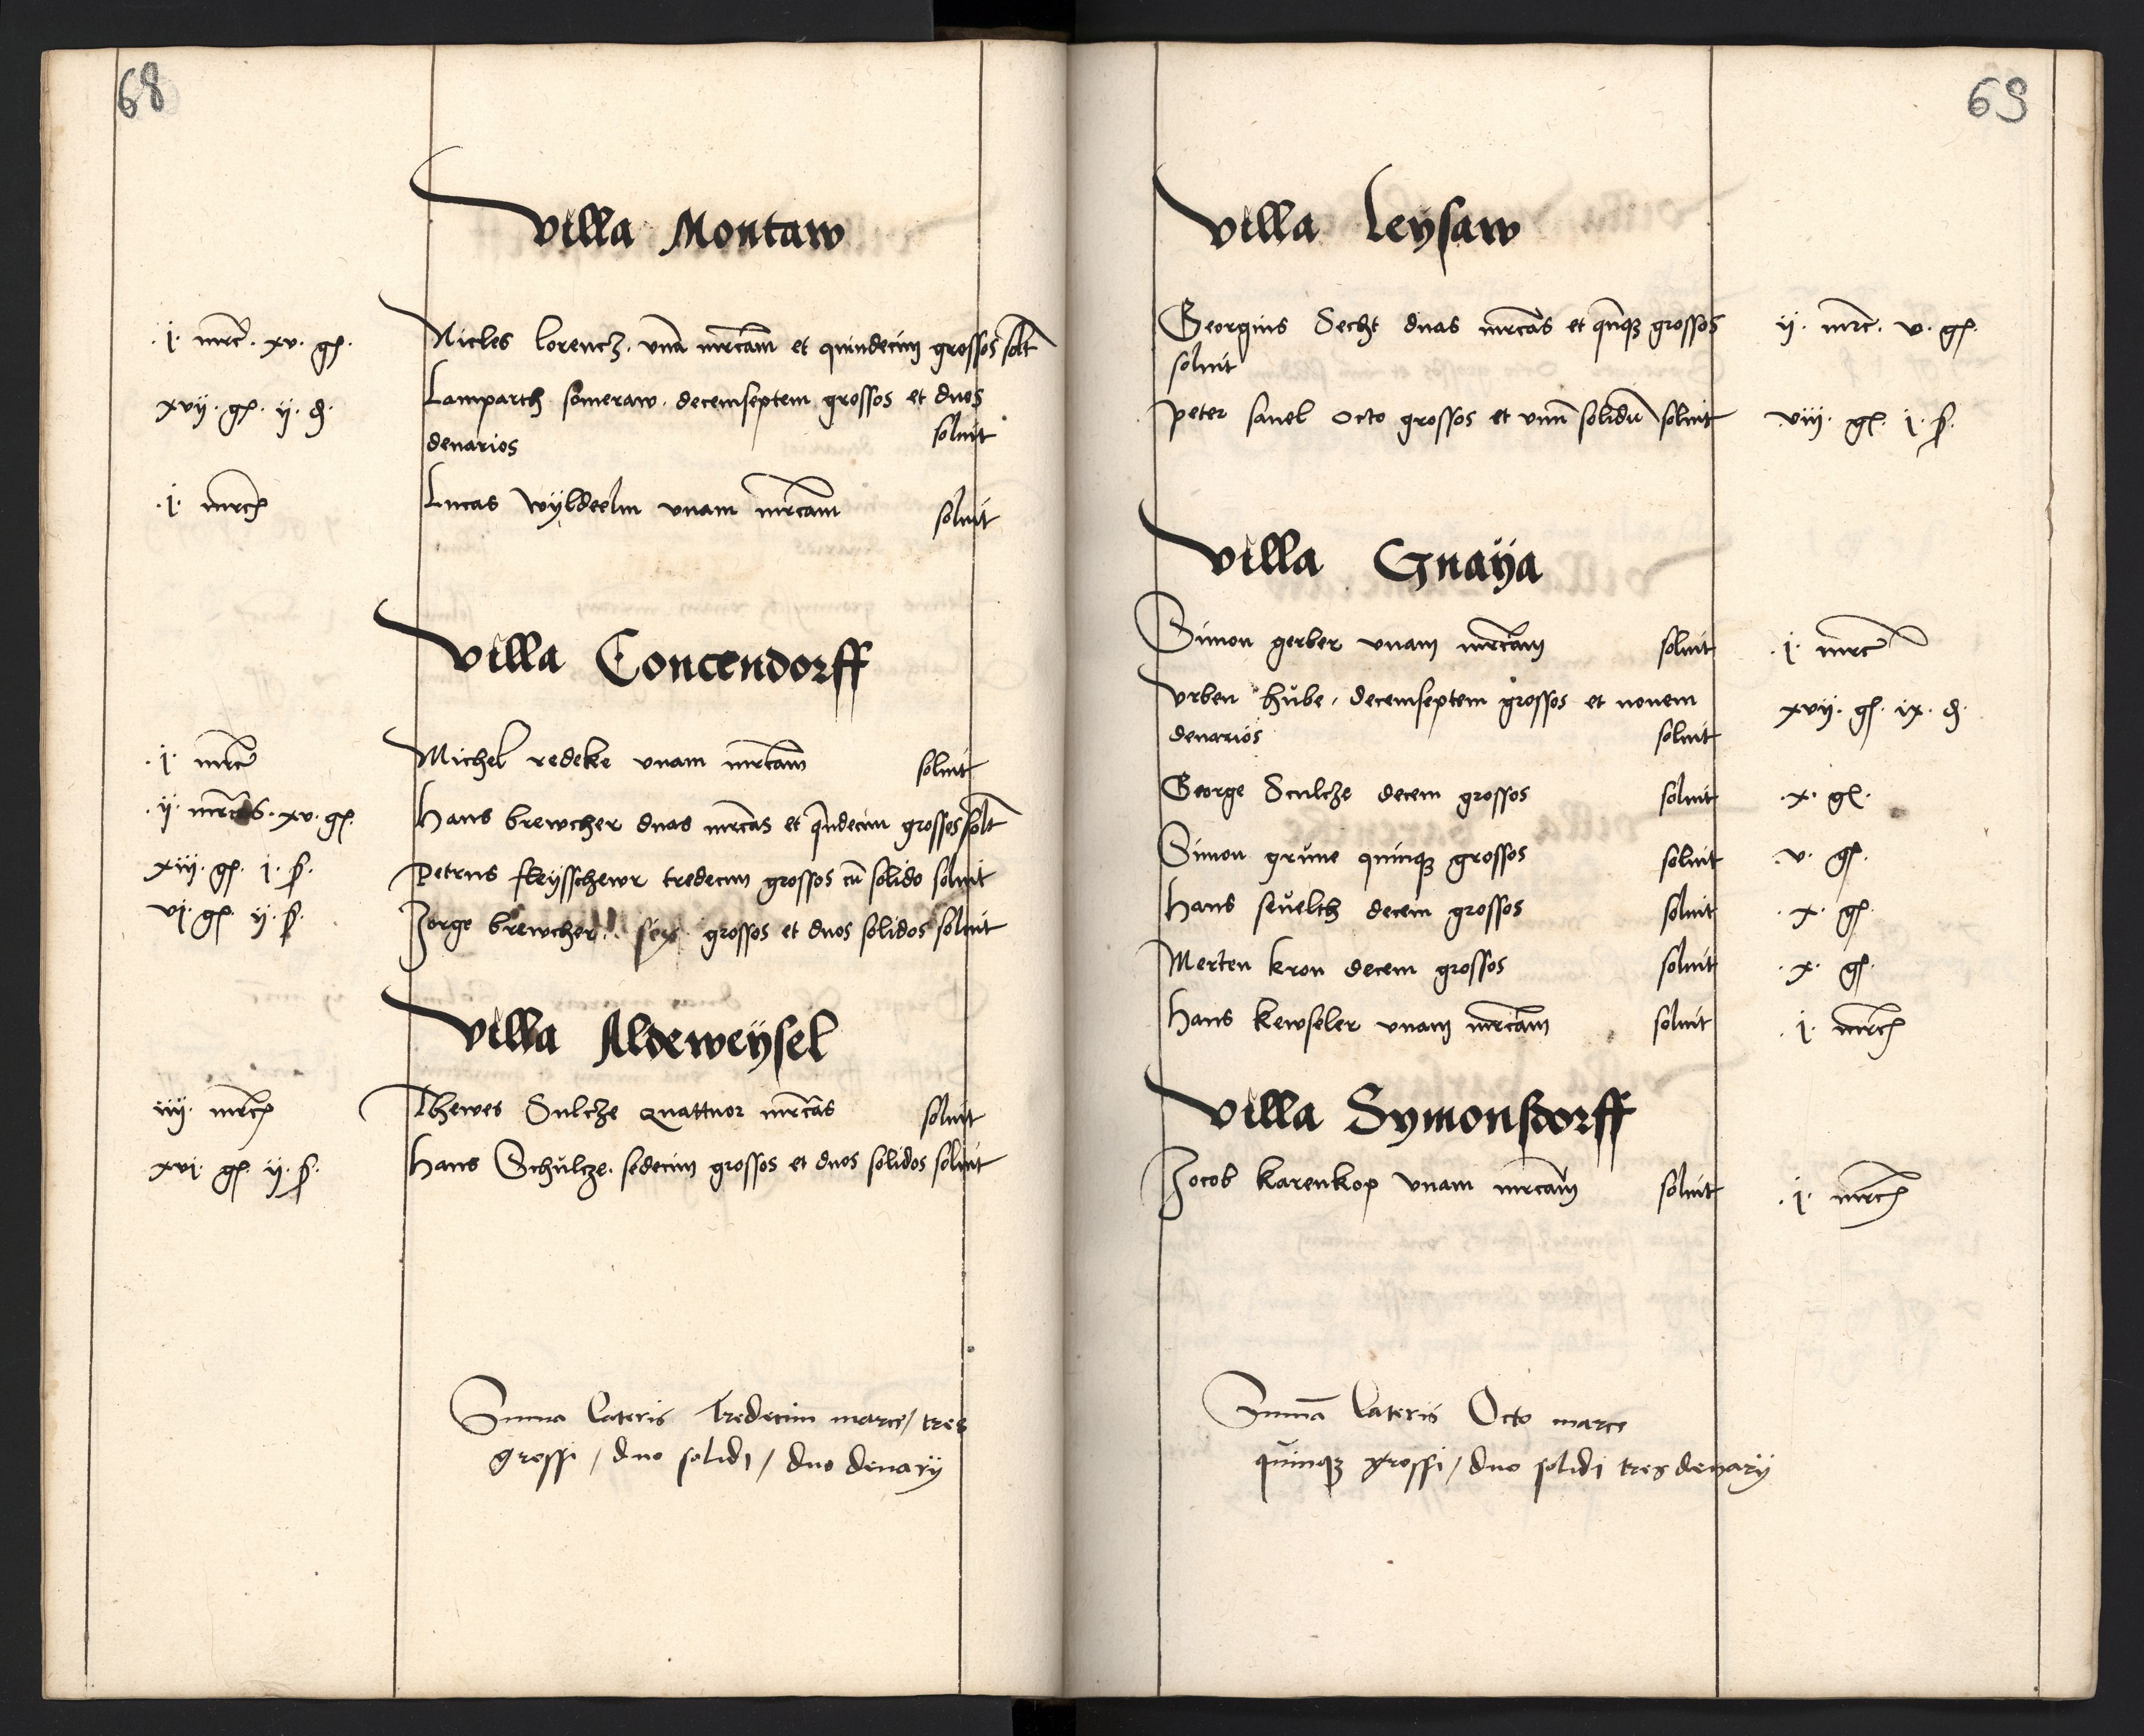 68
Villa Montaw
.i. mrc. xv. gs. Nicles lorencz. vna mrcam et quindecim grossos solt
xvij. gs. ij. d. Lamparth someraw. decemseptem grossos et duos
denarios soluit
.i. mrc Lucas Wyldeelm vnam mrcam soluit
Villa Concendorff
.i. mrc Michel redeke vnam mrcam soluit
.ij. mrcas. xv. gs. Hans brewcher duas mrcas et qindecim grosses solt
xiij. gs. i. s. Petrus fleysschewr tredecim grossos cu solido soluit
vi. gs. ij. s. Jorge brewcher. sex grossos et duos solidos soluit
Villa Aldeweysel
iiij. mrc Thewes Sulcze quattuor mrcas soluit
xvi. gs. ij. s. Hans Schulcze. sedecim grossos et duos solidos soluit
Suma lateris Tredecim marce / tres
grossi / duo solidi / duo denarij
69
Villa Leysaw
Georgius Secht duas mrcas et qunq3 grossos ij. mrc. v. gs.
soluit
peter sauel octo grossos et vnu solidu soluit viij. gs. i. s.
Villa Gnaya
Simon gerber vnam mrcam soluit .i. mrc
Vrben hube. decemseptem grossos et nouem xvij. gs. ix. d.
denarios soluit
George Sculcze decem grossos soluit .x. gs.
Simon grune quinq3 grossos soluit .v. gs.
Hans seuelth decem grossos soluit .x. gs.
Merten kron decem grossos soluit .x. gs.
Hans kewseler vnam mrcam soluit .i. mrc
Villa Symonsdorff
Jocob karenkop vnam mrcam soluit .i. mrc
Suma lateris Octo marce
quinq3 grossi / duo solidi tres denarij